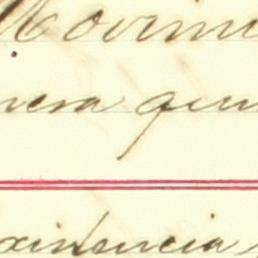 Movimi
nera quin
xistencia